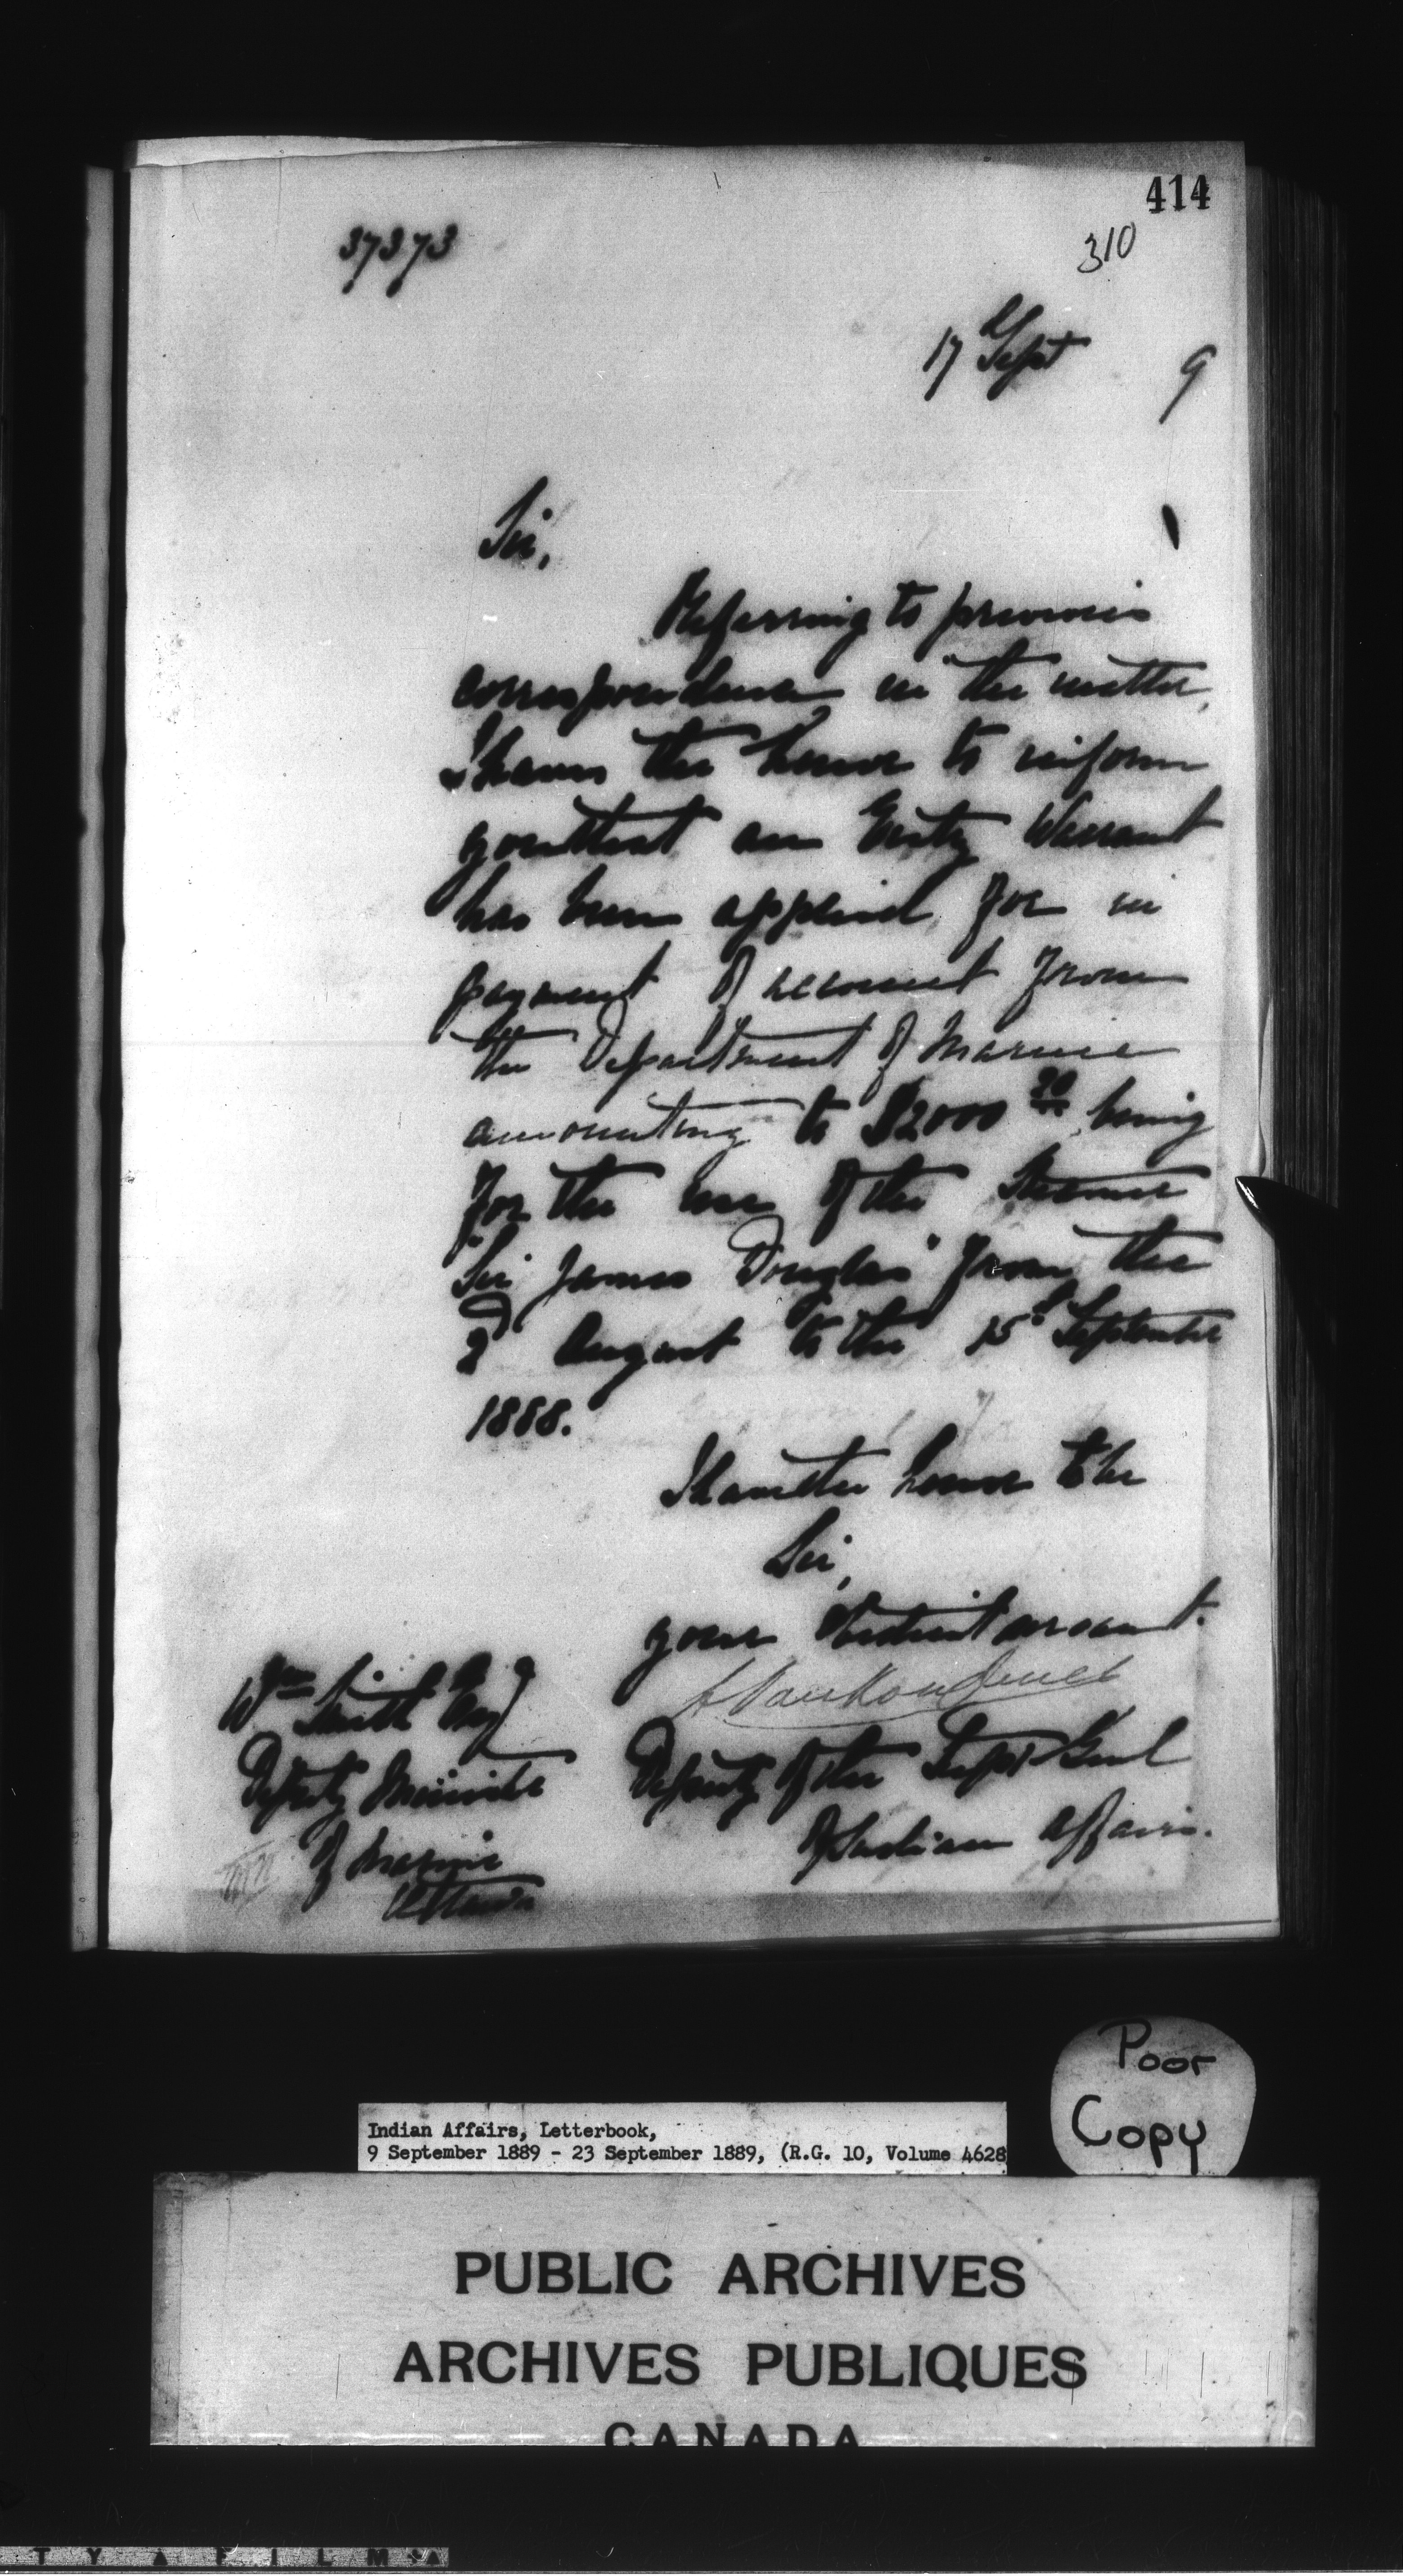 414
310
37373
17 Sept 9
Sir,
Referring to previous
correspondence in the matter,
I have the honor to inform
you that an Entry Warrant
has been applied for in
payment of account from
the Department of Marine
amounting to $2000 20 being
for the use of the Steamer
"Sir James Douglas" from the
2d August to the 15th September
1888.
I have the honor to be
Sir,
your obedient servant.
L VanKoughnet
Deputy of the Supt Genl
of Indian Affairs.
Wm Smith Esq
Deputy Minister
of Marine
Ottawa
Poor
Copy
Indian Affairs, Letterbook,
9 September 1889 - 23 September 1889, (R.G. 10, Volume 4628
PUBLIC ARCHIVES
ARCHIVES PUBLIQUES
CANADA